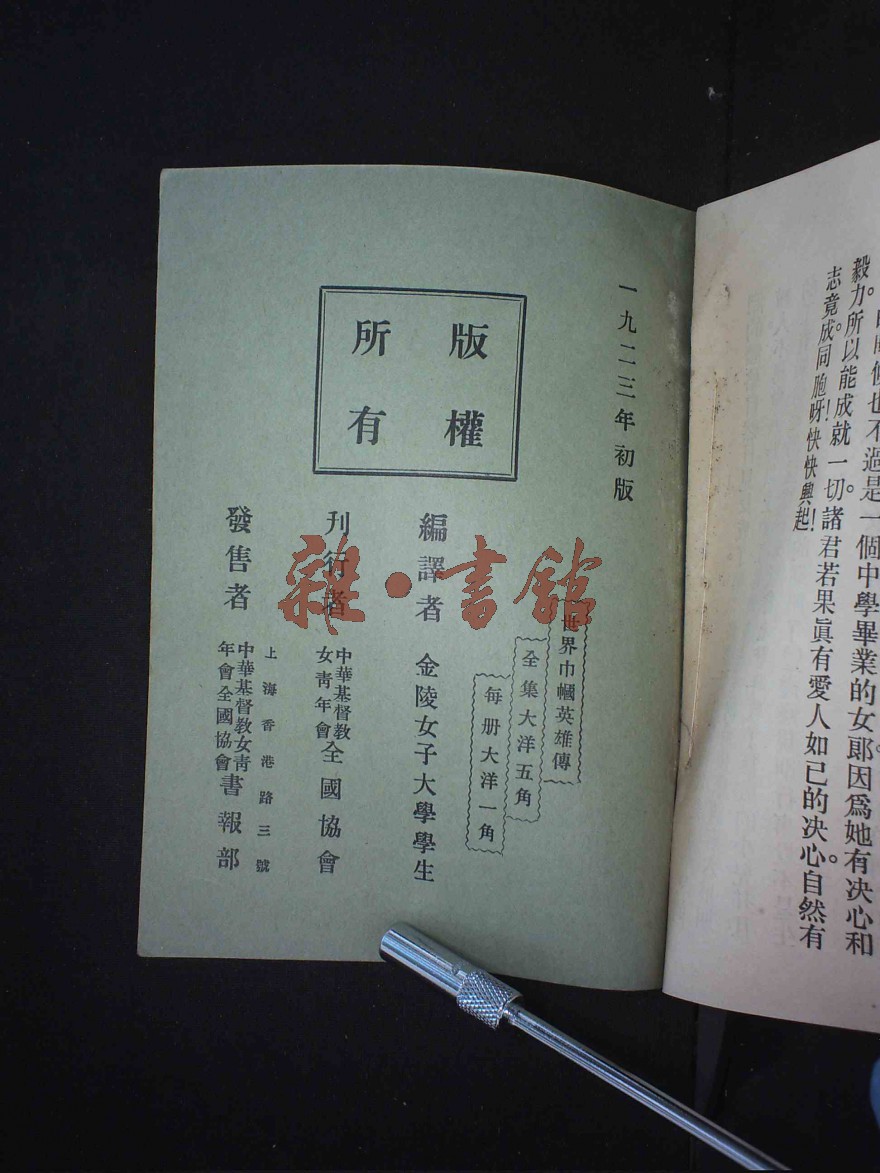 毅力。所以能成就一切。諸君若果眞有愛人如已的決心。自然有
志竟成。同胞呀！快快興起！
一九二三年初版
版權
所有
世界巾幗英雄傳
全集大洋五角
每册大洋一角
編譯者 金陵女子大學學生
刊行者 中華基督教女青年會全國協會
上海香港路三號
發售者 中華基督教女青年會全國協會書報部
雜·書館